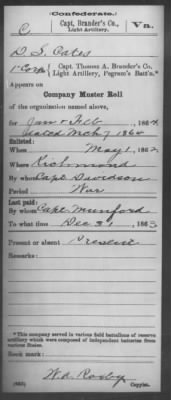 (Confederate.)
C Capt. Brander's Co., Va.
Light Artillery.
D. S. Cates
1 Corp, Capt. Thomas A. Brander's Co.,
Light Artillery, Pegram's Batt'n.*
Appears on
Company Muster Roll
of the organization named above,
for Jan & Feb, 1864
dated Mch 7 1864
Enlisted:
When May 1, 1862
Where Richmond
By whom Capt. Davidson
Period War
Last paid:
By whom Capt. Munford
To what time Dec 31, 1863
Present or absent Present
Remarks:
*This company served in various field battalions of reserve
artillery which were composed of independent batteries from
various States.
Book mark:
W. A. Rooby
(635) Copyist.